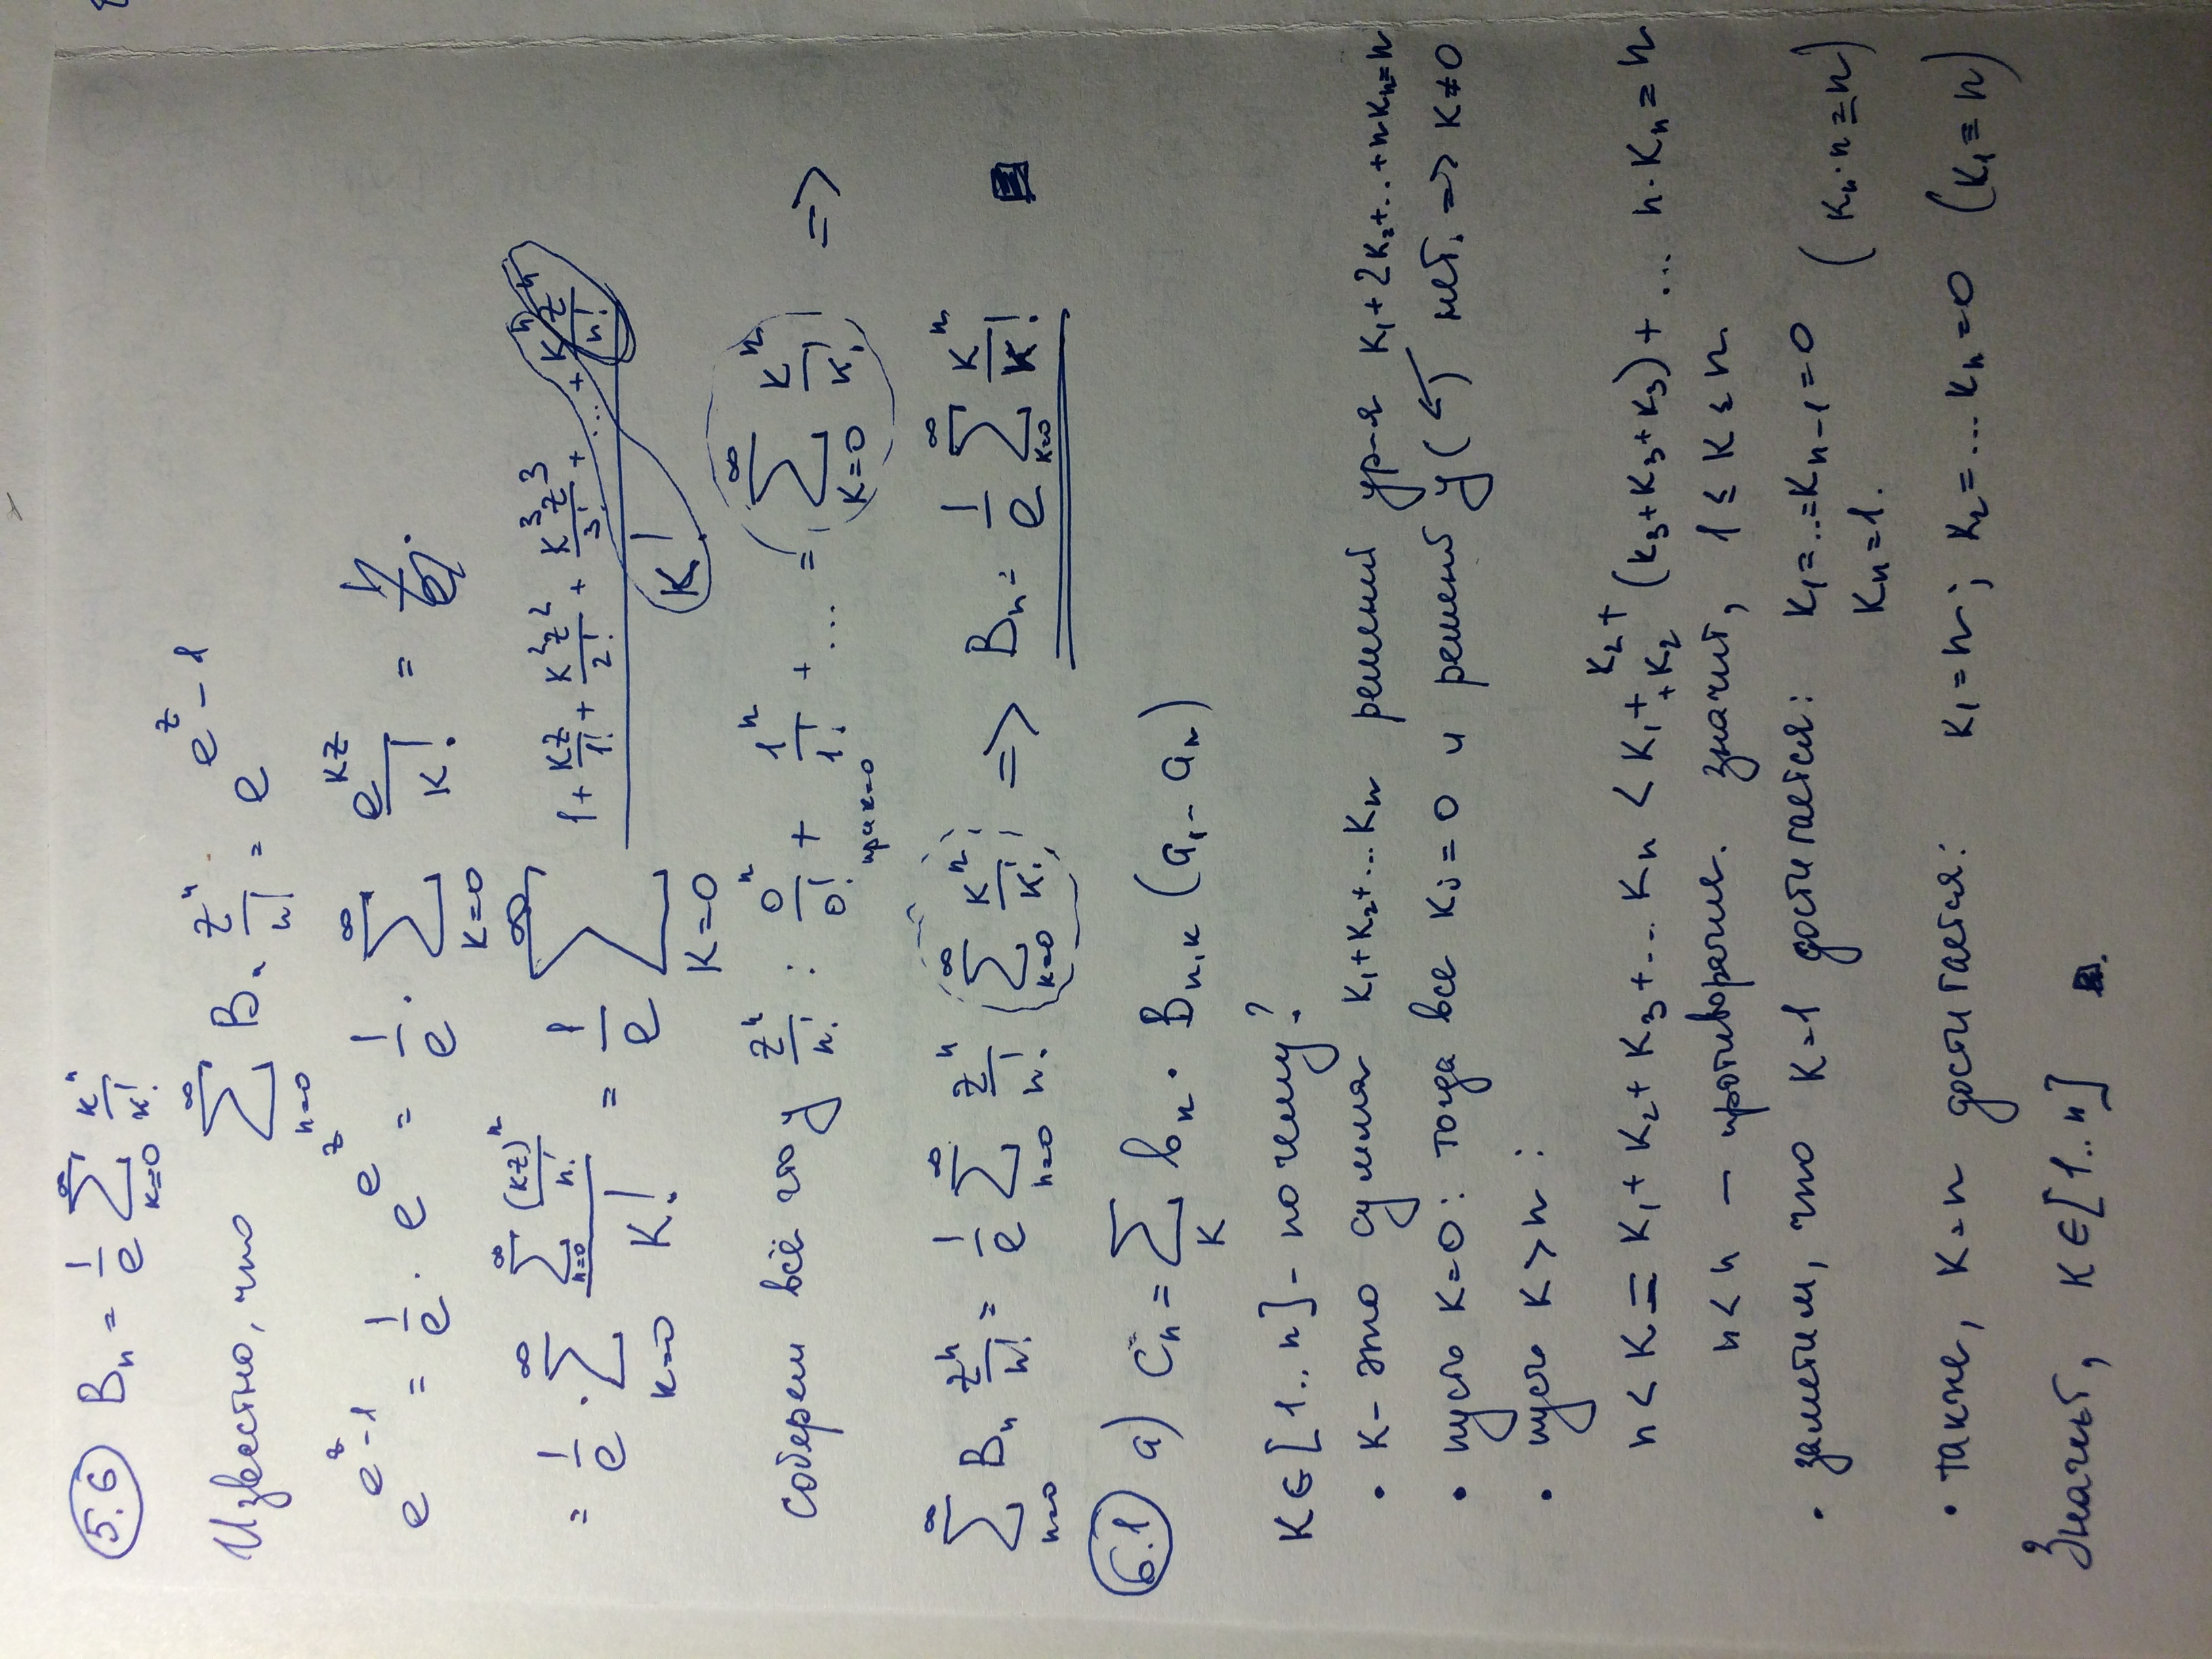 5.6 Bₙ = 1/e ∑_{k=0}^{∞} kⁿ/k!
Известно, что ∑_{n=0}^{∞} Bₙ zⁿ/n! = e^{e^z - 1}
e^{e^z - 1} = 1/e · e^{e^z} = 1/e · ∑_{k=0}^{∞} e^{kz}/k! =
= 1/e · ∑_{k=0}^{∞} (∑_{n=0}^{∞} (kz)ⁿ/n!)/k! = 1/e ∑_{k=0}^{∞} (1 + kz/1! + k²z²/2! + k³z³/3! + ... + kⁿzⁿ/n!)/k!
соберем всё что у zⁿ/n! : 0ⁿ/0! + 1ⁿ/1! + ... = (∑_{k=0}^{∞} kⁿ/k!) =>
при k=0
∑_{n=0}^{∞} Bₙ zⁿ/n! = 1/e ∑_{n=0}^{∞} zⁿ/n! (∑_{k=0}^{∞} kⁿ/k!) => Bₙ = 1/e ∑_{k=0}^{∞} kⁿ/k! ■
6.1 а) Cₙ = ∑_k bₙ · B_{n,k} (a₁ - aₙ)
k ∈ [1..n] - почему?
• k - это сумма k₁+k₂+...kₙ решений ур-я k₁+2k₂+..+nkₙ=n
• пусть k=0: тогда все kⱼ=0 и решений у (↙) нет. => k≠0
• пусть k>n :
n < k = k₁+k₂+k₃+...kₙ < k₁+k₂++k₂ (k₃+k₃+k₃)+ ... n·kₙ=n
n<n — противоречие. значит, 1≤k≤n
• заметим, что k=1 достигается: k₁=..=kₙ₋₁=0 (kₙ·n=n)
kₙ=1.
• также, k=n достигается: k₁=n; k₂=...kₙ=0 (k₁=n)
Значит, k∈[1..n] ■.